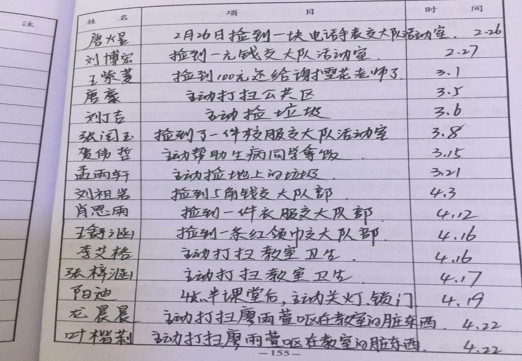 注
姓 名 项 目 时 间
唐火星 2月26日捡到一块电话手表交大队活动室. 2.26
刘博宏 捡到一元钱交大队活动室. 2.27
王紫菱 捡到100元还给谢碧花老师了 3.1
唐豪 主动打扫公共区 3.5
刘力吉 主动捡垃圾 3.6
张闰玉 捡到了一件校服交大队活动室 3.8
贺伟哲 主动帮助生病同学拿饭 3.15
孟雨轩 主动捡地上的垃圾 3.21
刘祖岩 捡到5角钱交大队部 4.3
肖思雨 捡到一件衣服交大队部 4.12
王舒涵 捡到一条红领巾交大队部. 4.16
李艾格 主动打扫教室卫生 4.16
张梓涵 主动打扫教室卫生 4.17
阳迪 4点半课堂后,主动关灯.锁门 4.19
龙晨晨 主动打扫廖雨萱呕在教室的脏东西. 4.22
叶楷莉 主动打扫廖雨萱呕在教室的脏东西. 4.22
—155—